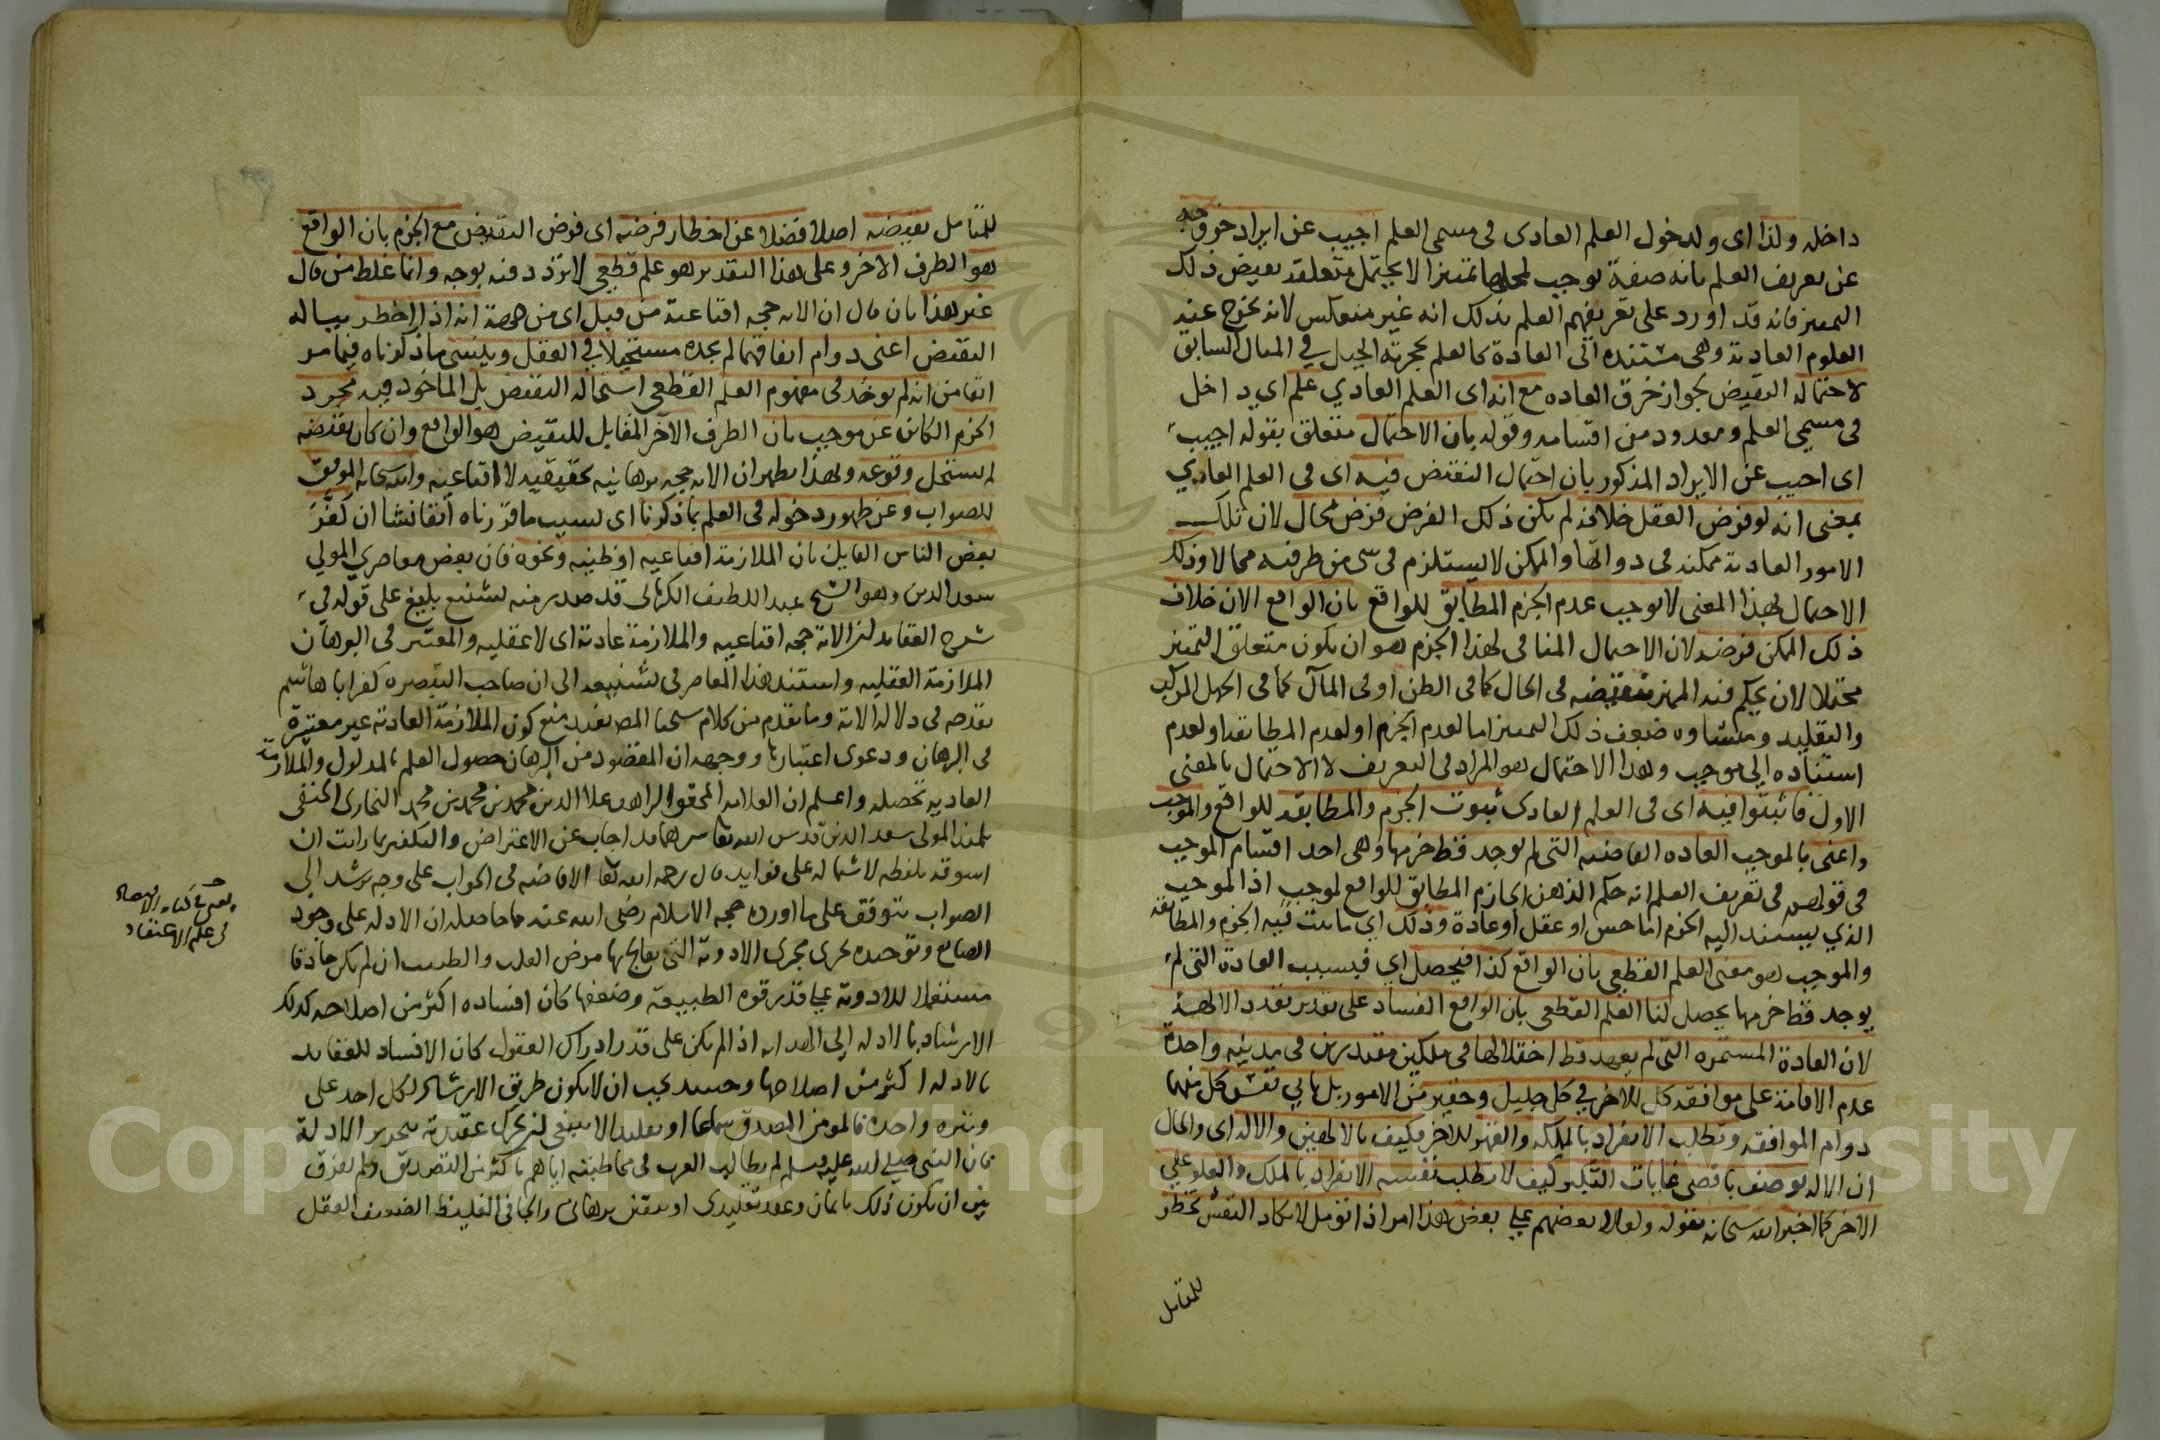 داخله ولذا اى ولدخول العلم العادى فى مسمى العلم اجيب عن ايراد خروجه
عن تعريف العلم بانه صفة توجب لمحلها تمييزا لا يحتمل متعلقه نقيض ذلك
التمييز فانه قد اورد على تعريفهم العلم بذلك انه غير منعكس لانه يخرج عنه
العلوم العادية وهى مستنده الى العادة كالعلم بحجرية الجبل فى المثال السابق
لاحتماله النقيض بجواز خرق العاده مع انه اى العلم العادي علم اى داخل
فى مسمى العلم ومعدود من اقسامه وقوله بان الاحتمال متعلق بقوله اجيب
اى اجيب عن الايراد المذكور بان احتمال النقيض فيه اى فى العلم العادي
بمعنى انه لو فرض العقل خلافه لم يكن ذلك الفرض فرض محال لان تلك
الامور العادية ممكنه فى ذواتها والممكن لا يستلزم فى شى من طرفيه محالا وذلك
الاحتمال بهذا المعنى لا يوجب عدم الجزم المطابق للواقع بان الواقع الان خلاف
ذلك الممكن فرضه لان الاحتمال المنافى لهذا الجزم هو ان يكون متعلق التمييز
محتملا لان يحكم فيه المميز بنقيضه فى الحال كما فى الظن او فى المآل كما فى الجهل المركب
والتقليد ومنشاوه ضعف ذلك التمييز اما لعدم الجزم او لعدم المطابقه او لعدم
استناده الى موجب وهذا الاحتمال هو المراد فى التعريف لا الاحتمال بالمعنى
الاول فاثبتوا فيه اى فى العلم العادى ثبوت الجزم والمطابقه للواقع والموجب
واعنى بالموجب العاده القاضيه التى لم يوجد قط خرمها وهى احد اقسام الموجب
فى قولهم فى تعريف العلم انه حكم الذهن الجازم المطابق للواقع لموجب اذ الموجب
الذي يستند اليه الجزم اما حس او عقل او عادة وذلك اى ما يثبت فيه الجزم والمطابقه
والموجب هو معنى العلم القطعى بان الواقع كذا فيحصل اى فبسبب العادة التى لم
يوجد قط خرمها يحصل لنا العلم القطعى بان الواقع الفساد على تقدير تعدد الالهة
لان العادة المستمره التى لم يعهد قط اختلالها فى ملكين مقتدرين فى مدينه واحدة
عدم الاقامة على موافقه كل للاخر فى كل جليل وحقير من الامور بل تابى نفس كل منهما
دوام الموافقه وتطلب الانفراد بالملكه والقهر للاخر فكيف بالالهين والاله اى والحال
ان الاله يوصف باقصى غايات التكبر كيف لا تطلب نفسه الانفراد بالملك والعلو على
الاخر كما اخبر الله سبحانه بقوله ولعلا بعضهم على بعض هذا امر اذا تومل لا تكاد النفس تخطر
للمتامل
للمتامل نقيضه اصلا فضلا عن اخطار فرضه اى فرض النقيض مع الجزم بان الواقع
هو الطرف الاخر وعلى هذا التقدير هو علم قطعى لا تردد فيه بوجه وانما غلط من قال
غير هذا بان قال ان الايه حجه اقناعية من قبل اى من جهة انه اذا اخطر بباله
النقيض اعنى دوام اتفاقهما لم يجده مستحيلا فى العقل وينسى ما ذكرناه فيما مر
انفا من انه لم يوخذ فى مفهوم العلم القطعى استحاله النقيض بل الماخوذ فيه مجرد
الجزم الكائن عن موجب بان الطرف الآخر المقابل للنقيض هو الواقع وان كان نقيضه
لم يستحل وقوعه وبهذا يظهر ان الايه حجه برهانيه تحقيقيه لا اقناعيه والله سبحانه الموفق
للصواب وعن ظهور دخوله فى العلم بما ذكرنا اى بسبب ما قررناه آنفا نشا ان كفّر
بعض الناس القايل بان الملازمة اقناعيه او ظنيه ونحوه فان بعض معاصري المولى
سعد الدين وهو الشيخ عبد اللطيف الكرمانى قد صدر منه تشنيع بليغ على قوله فى
شرح العقايد ان الاية حجه اقناعيه والملازمة عادية اى لا عقليه والمعتبر فى البرهان
الملازمة العقليه واستند هذا المعاصر فى تشنيعه الى ان صاحب التبصره كفر ابا هاشم
بقدحه فى دلالة الاية وما تقدم من كلام شيخنا المص يفيد منع كون الملازمة العادية غير معتبرة
فى البرهان ودعوى اعتبارها ووجهه ان المقصود من البرهان حصول العلم بالمدلول والملازمة
العاديه تحصله واعلم ان العلامه المحقق الزاهد علا الدين محمد بن محمد بن محمد البخارى الحنفى
تلميذ المولى سعد الدين قدس الله تعا سرهما قد اجاب عن الاعتراض والتكفير بما رايت ان
اسوقه بلفظه لاشتماله على فوايد قال رحمه الله تعا الافاضه فى الجواب على وجه يرشد الى
الصواب يتوقف على ما اورده حجه الاسلام رضى الله عنه مما حاصله ان الادله على وجود
الصانع وتوحيده يجرى مجرى الادوية التى يعالج بها مرض القلب والطبيب ان لم يكن حاذقا
مستعملا للادوية على قدر قوه الطبيعة وضعفها كان افساده اكثر من اصلاحه كذلك
الارشاد بالادله الى الهدايه اذا لم يكن على قدر ادراك العقول كان الافساد للعقايد
بالادله اكثر من اصلاحها وحينيذ يجب ان لا يكون طريق الارشاد لكل احد على
وتيره واحدة فالمومن المصدق سماعا او تقليدا لا ينبغى ان تحرك عقيدته بتحرير الادلة
فان النبى صلى الله عليه وسلم لم يطالب العرب فى مخاطبته اياهم باكثر من التصديق ولم يفرق
بين ان يكون ذلك بايمان وعقد تقليدى او بيقين برهانى والجافى الغليظ الضعيف العقل
فى علم الاعتقاد